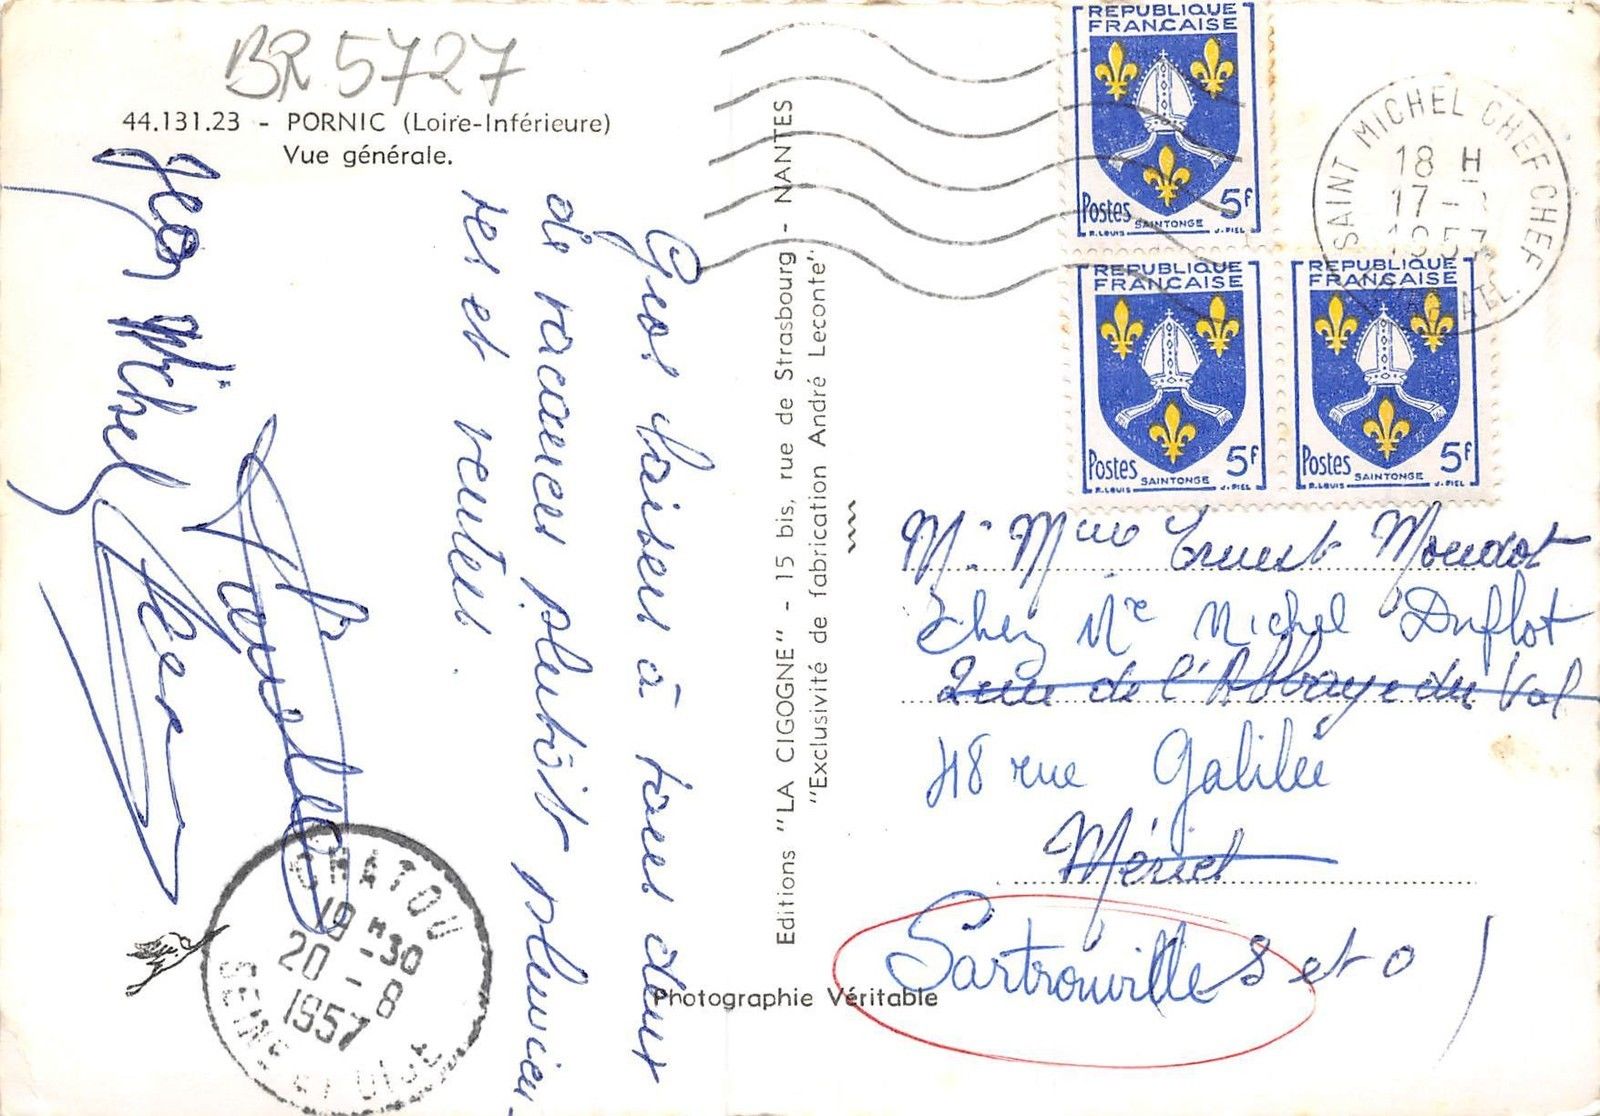 BR 5727
44.131.23 - PORNIC (Loire-Inférieure)
Vue générale.
Gros baisers à tous deux
de vacances plutôt pluvieu-
ses et venteuses.
Michel
Editions "LA CIGOGNE" - 15 bis, rue de Strasbourg - NANTES
"Exclusivité de fabrication André Leconte"
Photographie Véritable
CHATOU
19 H 30
20 - 8
1957
SEINE ET OISE
REPUBLIQUE
FRANÇAISE
Postes 5F
SAINTONGE
R. LOUIS J. PIEL
REPUBLIQUE
FRANÇAISE
Postes 5F
SAINTONGE
R. LOUIS J. PIEL
REPUBLIQUE
FRANÇAISE
Postes 5F
SAINTONGE
R. LOUIS J. PIEL
SAINT MICHEL CHEF CHEF
18 H
17 -
1957
ATL.
M. Mme Ernest Moudot
Chez Mr Michel Duflot
Rue de l'Abbaye du Val
48 rue Galilée
Mériel
Sartrouville S et O